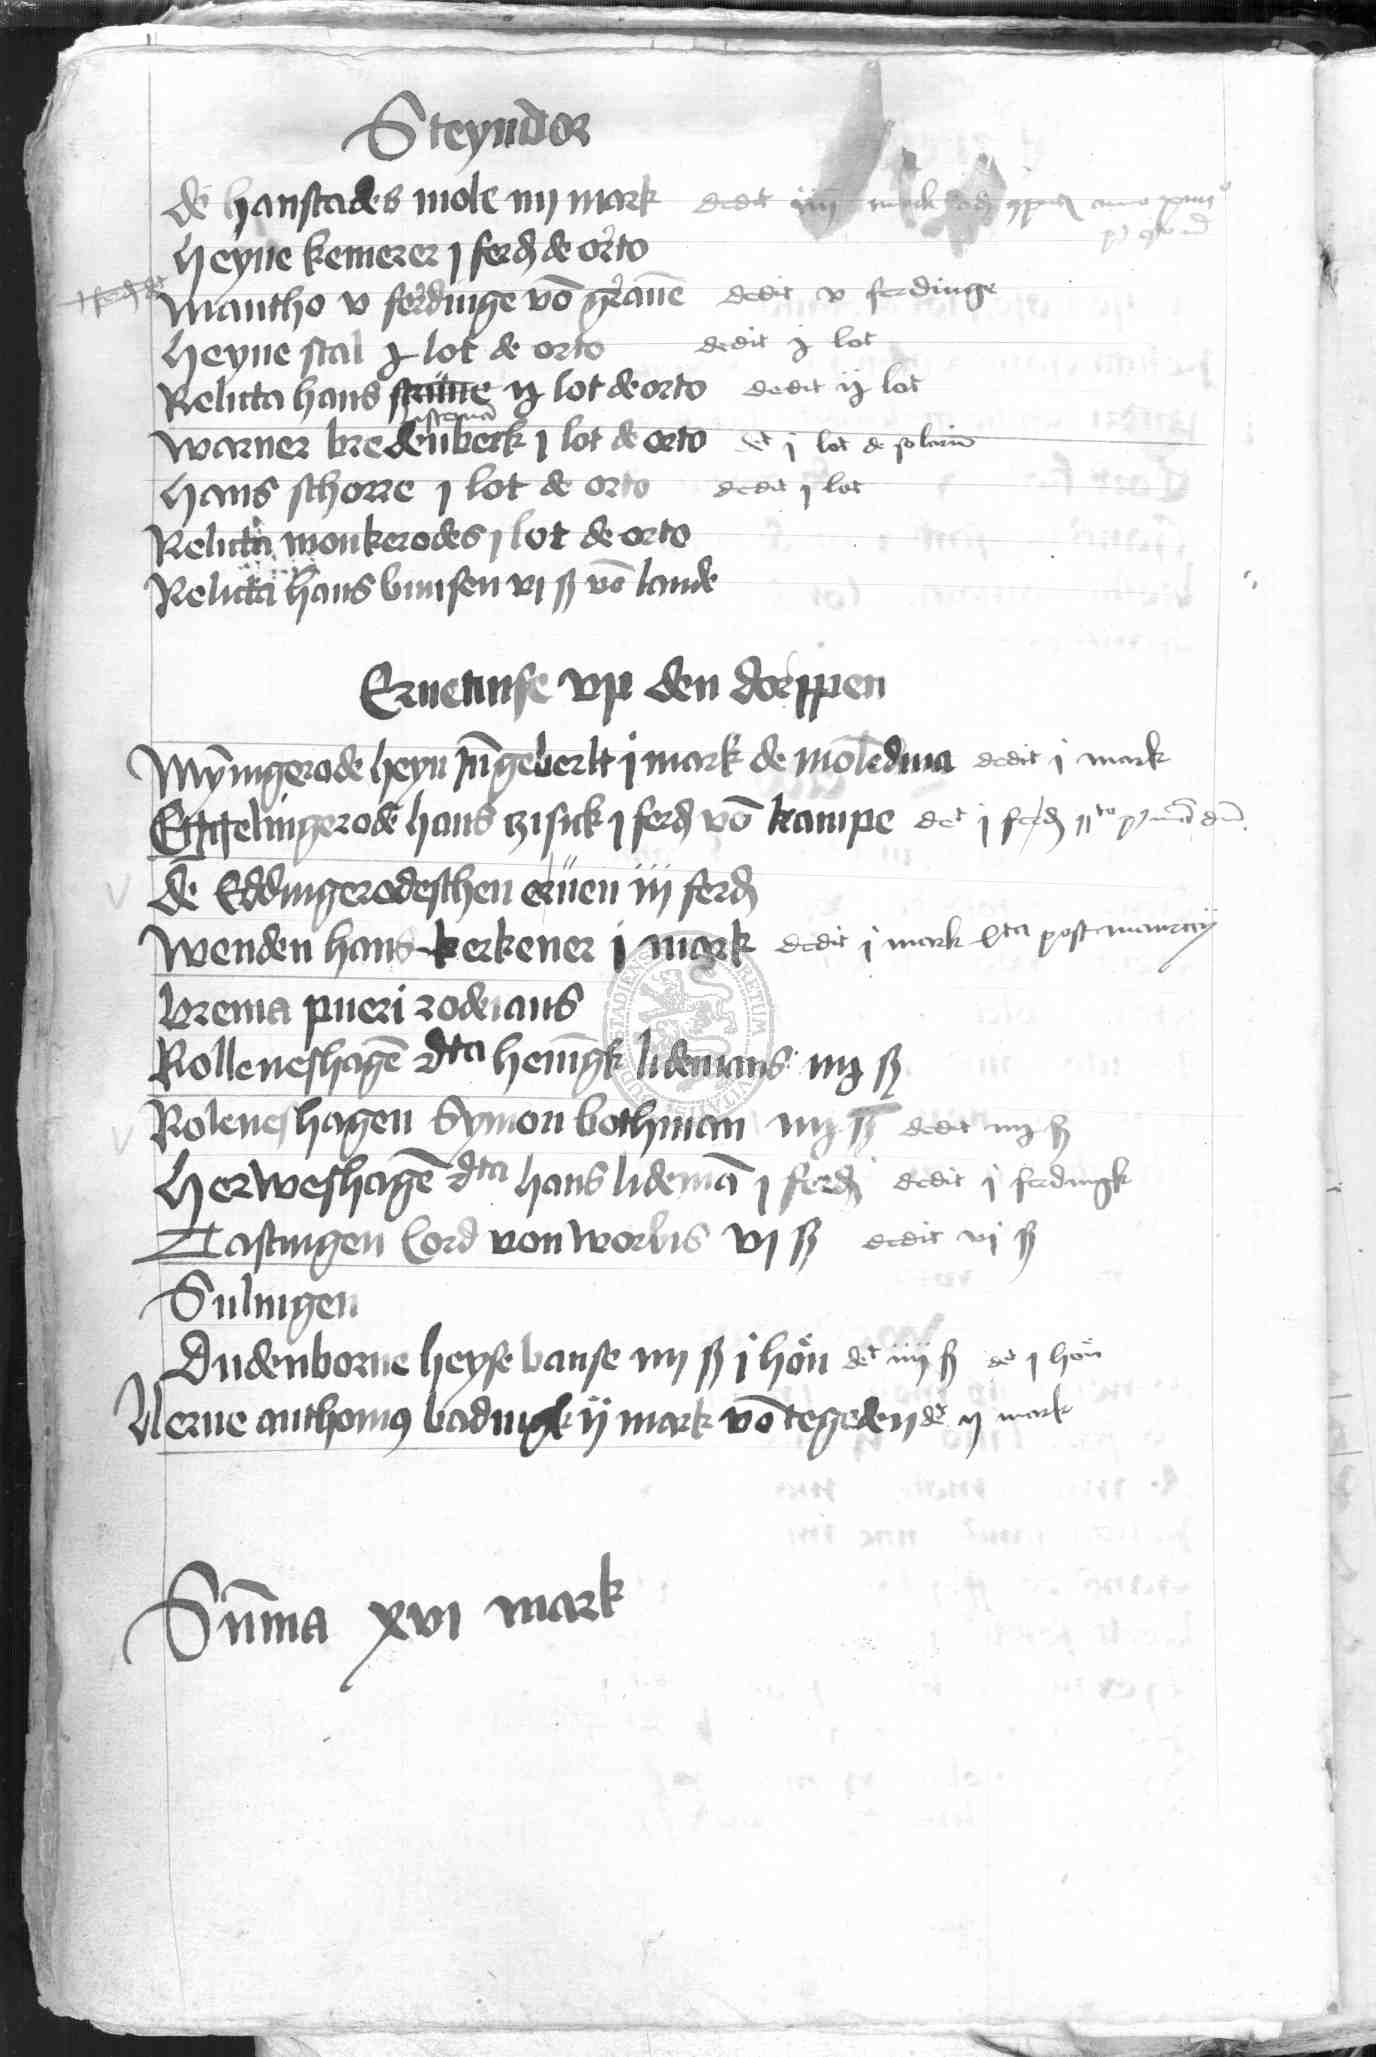 Steyndor
de hanstades mole iiij mark dedit iiij mark
heyne kemerer j ferd de orto
mantho v ferdinge vō grauē dedit v ferdinge
heyne stal j lot de orto dedit j lot
Relicta hans ij lot de orto dedit ij lot
warner bredenberk j lot de orto det j lot de solario
hans schorre j lot de orto dedit j lot
Relicta monkerodes j lot de orto
Relicta hans bunsen vi ß vō lande
Eruetinse vp den dorppen
Mȳngerode heyn j mark de molēdina dedit j mark
Eppelingerode hans zisick j ferd vō kampe det j ferd
de Eddingerodeschen erüen iij ferd
Wenden hans kerkener j mark dedit j mark post mauricij
brema pueri rodemans
Rolleneshagē dta hēnigk lidemans iiij ß
Roleneshagen Symon bothman iiij ß dedit iiij ß
Herweshagē dta hans lidemā j ferd dedit j ferdingk
Tastungen Cord von Worbis vj ß dedit vj ß
Sulingen
Dudenborne heyse banse iiij ß j hön det iiij ß det j hön
Uerne anthonius badingk ij mark vō tegeden det ij mark
Sūma xvi mark